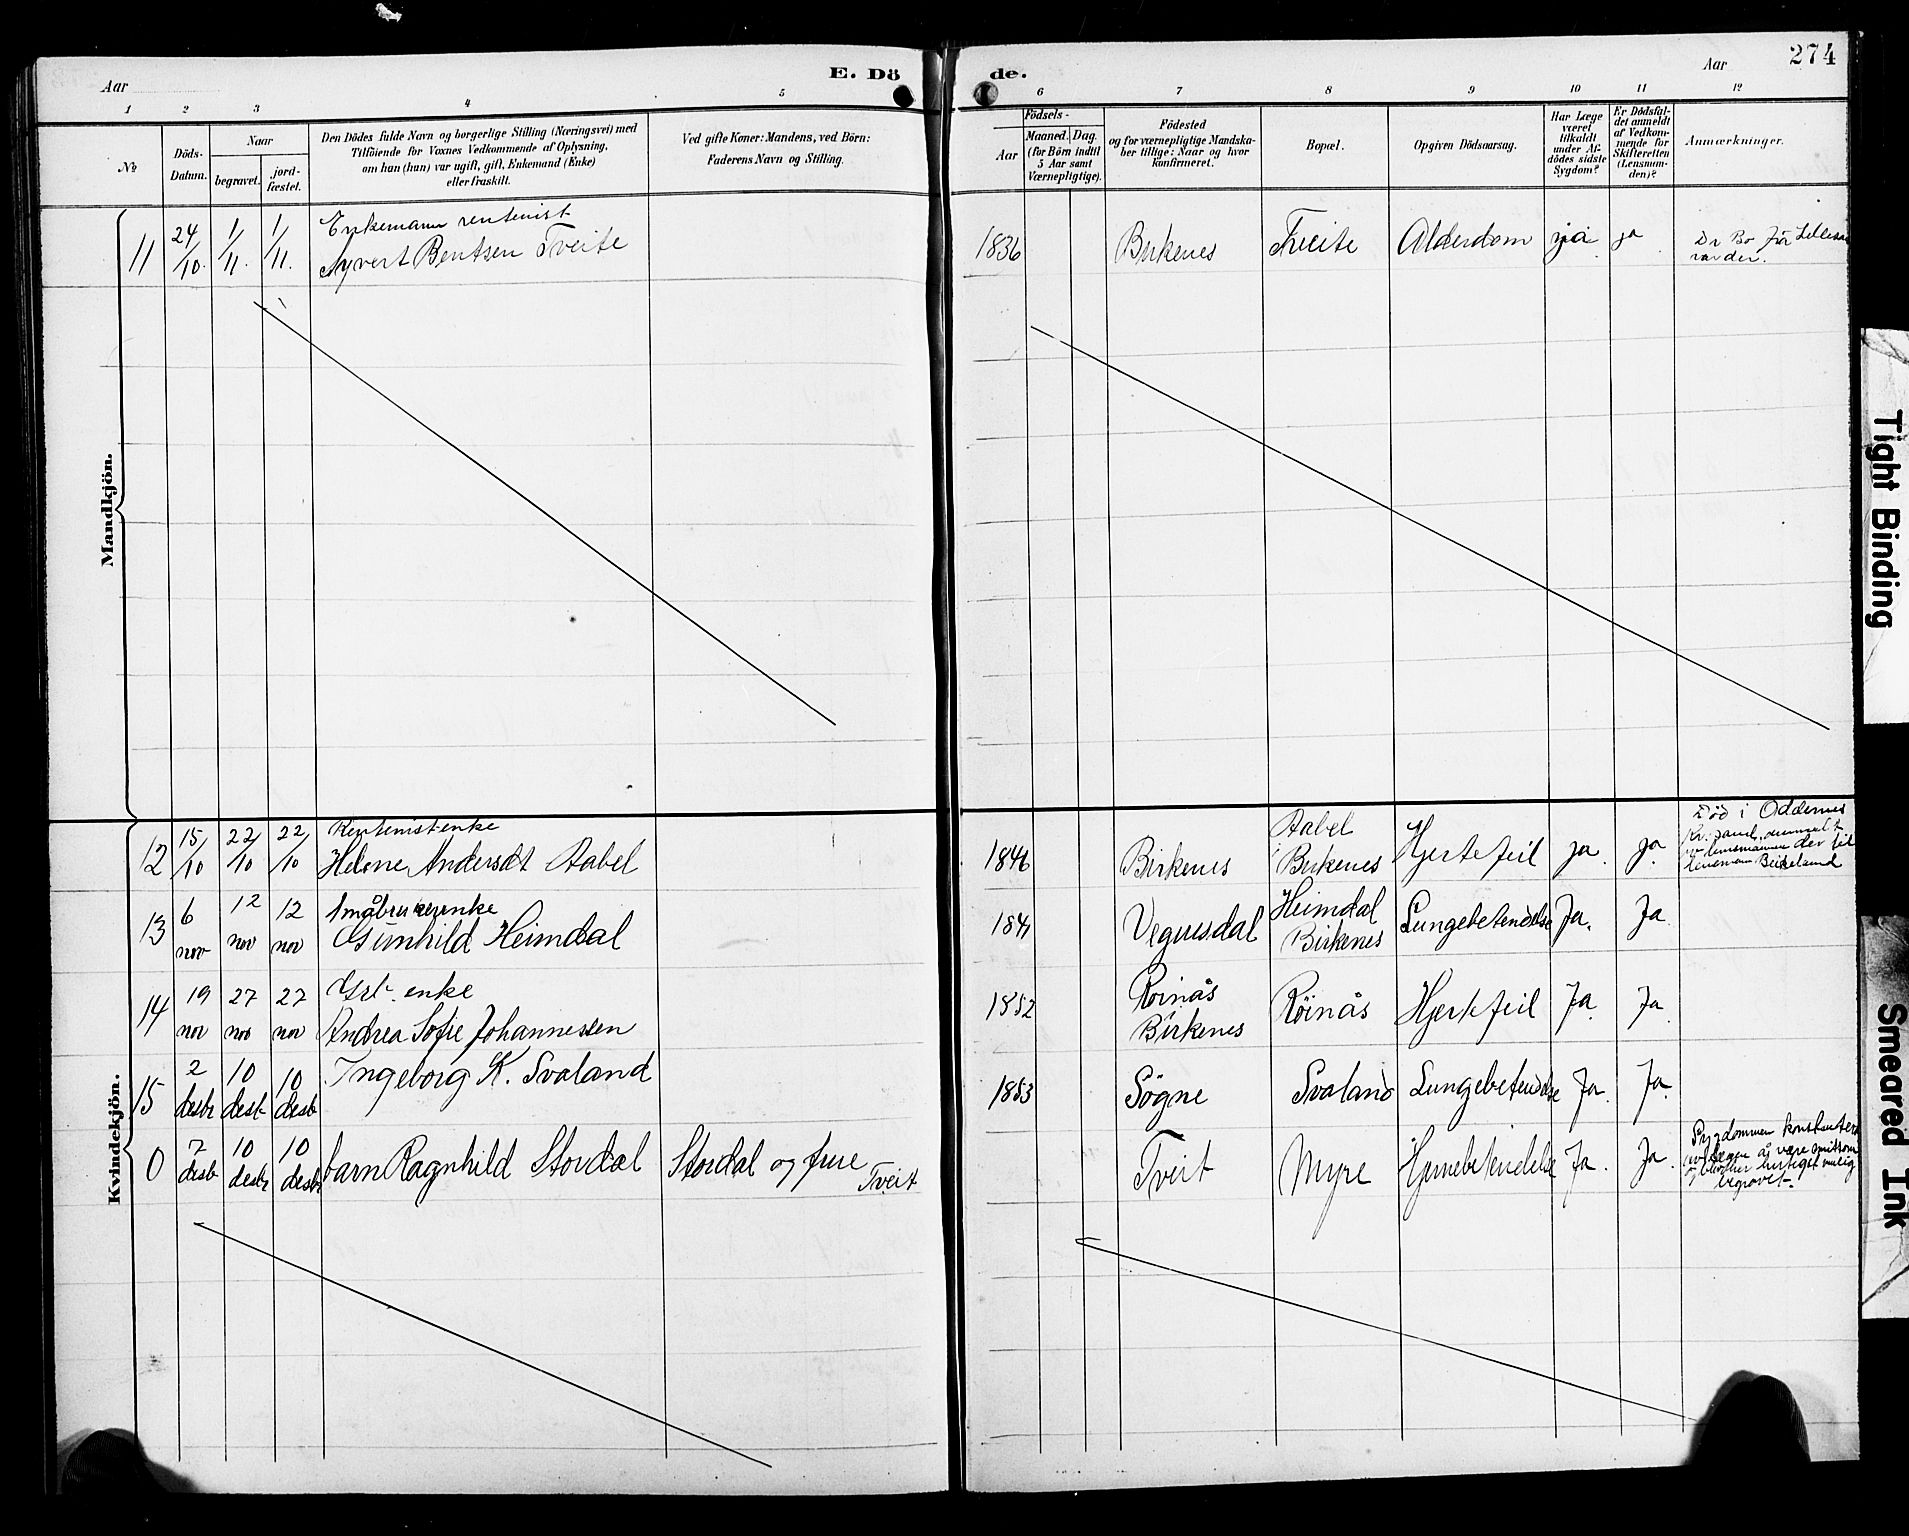 274
E. Dö de.
Aar
Aar
1 2 3 4 5 6 7 8 9 10 11 12
№
Döds-
Datum.
Naar
begravet.
jord-
fæstet.
Den Dödes fulde Navn og borgerlige Stilling (Næringsvei) med
Tilföiende for Voxnes Vedkommende af Oplysning,
om hun (han) var ugift, gift, Enkemand (Enke)
eller fraskilt.
Ved gifte Koner: Mandens, ved Börn:
Faderens Navn og Stilling.
Födsels-
Aar
Maaned. Dag.
(for Börn indtil
5 Aar samt
Værnepligtige).
Födested
og for værnepligtige Mandska-
ber tillige: Naar og hvor
konfirmeret.
Bopæl.
Opgiven Dödsaarsag.
Har Læge
været
tilkaldt
under Af-
dödes sidste
Sygdom?
Er Dödsfal-
det anmeldt
af Vedkom-
mende for
Skifteretten
(Lensman-
den)?
Anmærkninger.
Mandkjön.
Enkemann rentenist
11 24/10. 1/11. 1/11. Syvert Bentsen Tveite 1836 Birkenes Tveite Alderdom ja ja
Kvindekjön.
Rentenistenke
12 15/10 22/10 22/10 Helene Andersdt Aabel 1846 Birkenes Aabel
i Birkenes Hjertefeil ja. ja.
Död i Oddernes
lensmann Beikeland
Småbrukerenke
13 6 nov 12 nov 12 nov Gunhild Heimdal 184 Vegusdal Heimdal
Birkenes Lungebetendelse Ja. Ja.
Grb. enke
14 19 nov 27 nov 27 nov Andrea Sofie Johannessen 1852 Röinås
Birkenes Röinås Hjertefeil Ja. Ja.
15 2 desbr 10 desb 10 desb Ingeborg K. Svaland 1853 Sögne Svaland Lungebetendelse Ja. Ja.
0 7 desb 10 desbr 10 desbr barn Ragnhild Stordal Stordal og frue
Tveit Tveit Myre Hjernebetendelse Ja. Ja.
begravet.
Tight Binding
Smeared Ink